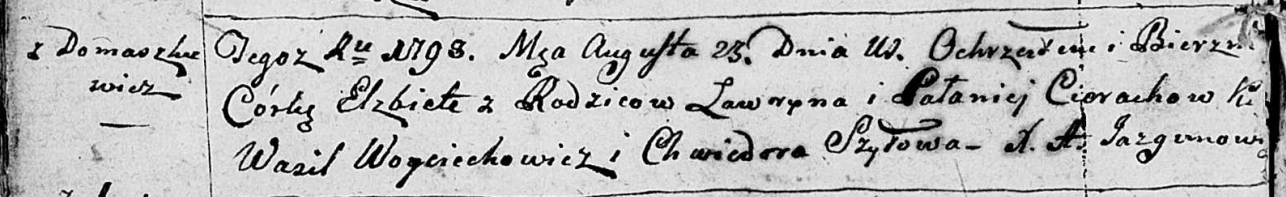 z Domaszke
wicz
Tegoż Ru 1798. Mca Augusta 23. Dnia W. Ochrzciłem i Bierzm
Córkę Elżbietę z Rodzicow Lawryna i Pałaniej Ciorachow K:
Wasil Woyciechowicz i Chwiedora Szyłowa - X. A. Jazgunowi